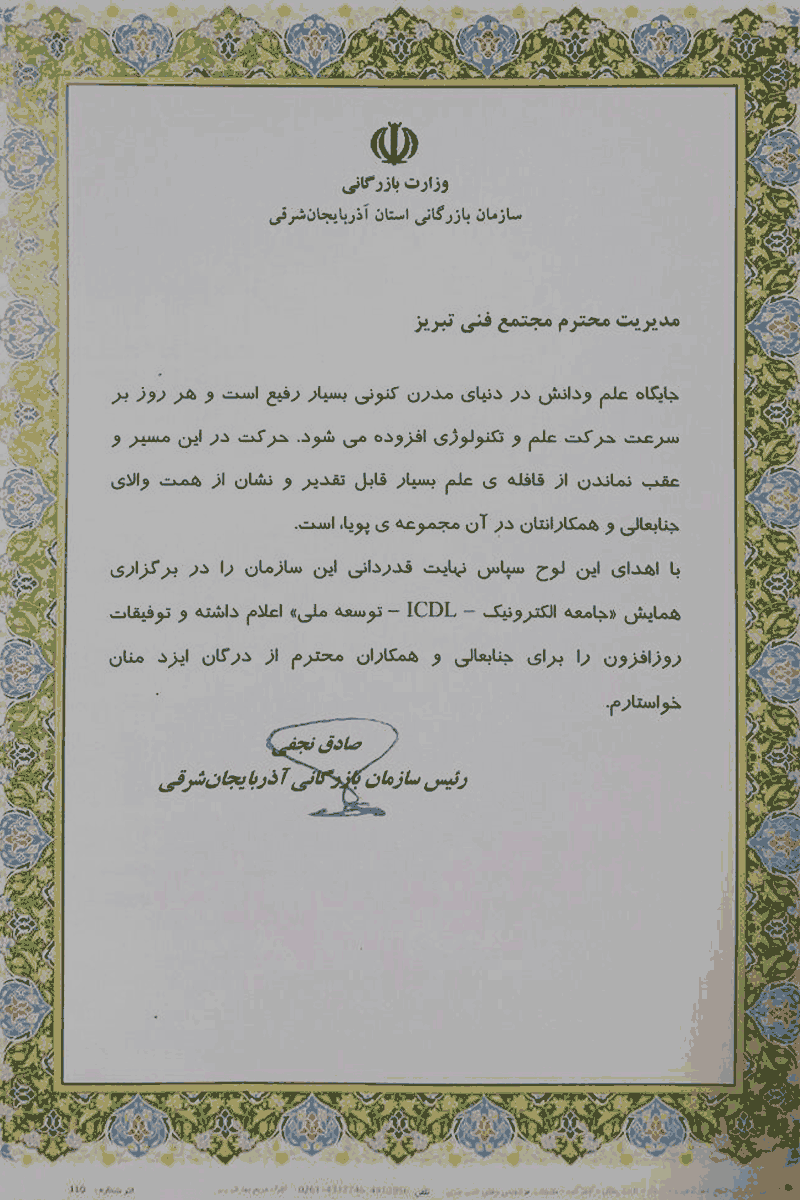 وزارت بازرگانی
سازمان بازرگانی استان آذربایجان‌شرقی
مدیریت محترم مجتمع فنی تبریز
جایگاه علم ودانش در دنیای مدرن کنونی بسیار رفیع است و هر روز بر
سرعت حرکت علم و تکنولوژی افزوده می شود. حرکت در این مسیر و
عقب نماندن از قافله ی علم بسیار قابل تقدیر و نشان از همت والای
جنابعالی و همکارانتان در آن مجموعه ی پویا، است.
با اهدای این لوح سپاس نهایت قدردانی این سازمان را در برگزاری
همایش «جامعه الکترونیک – ICDL – توسعه ملی» اعلام داشته و توفیقات
روزافزون را برای جنابعالی و همکاران محترم از درگان ایزد منان
خواستارم.
صادق نجفی
رئیس سازمان بازرگانی آذربایجان‌شرقی